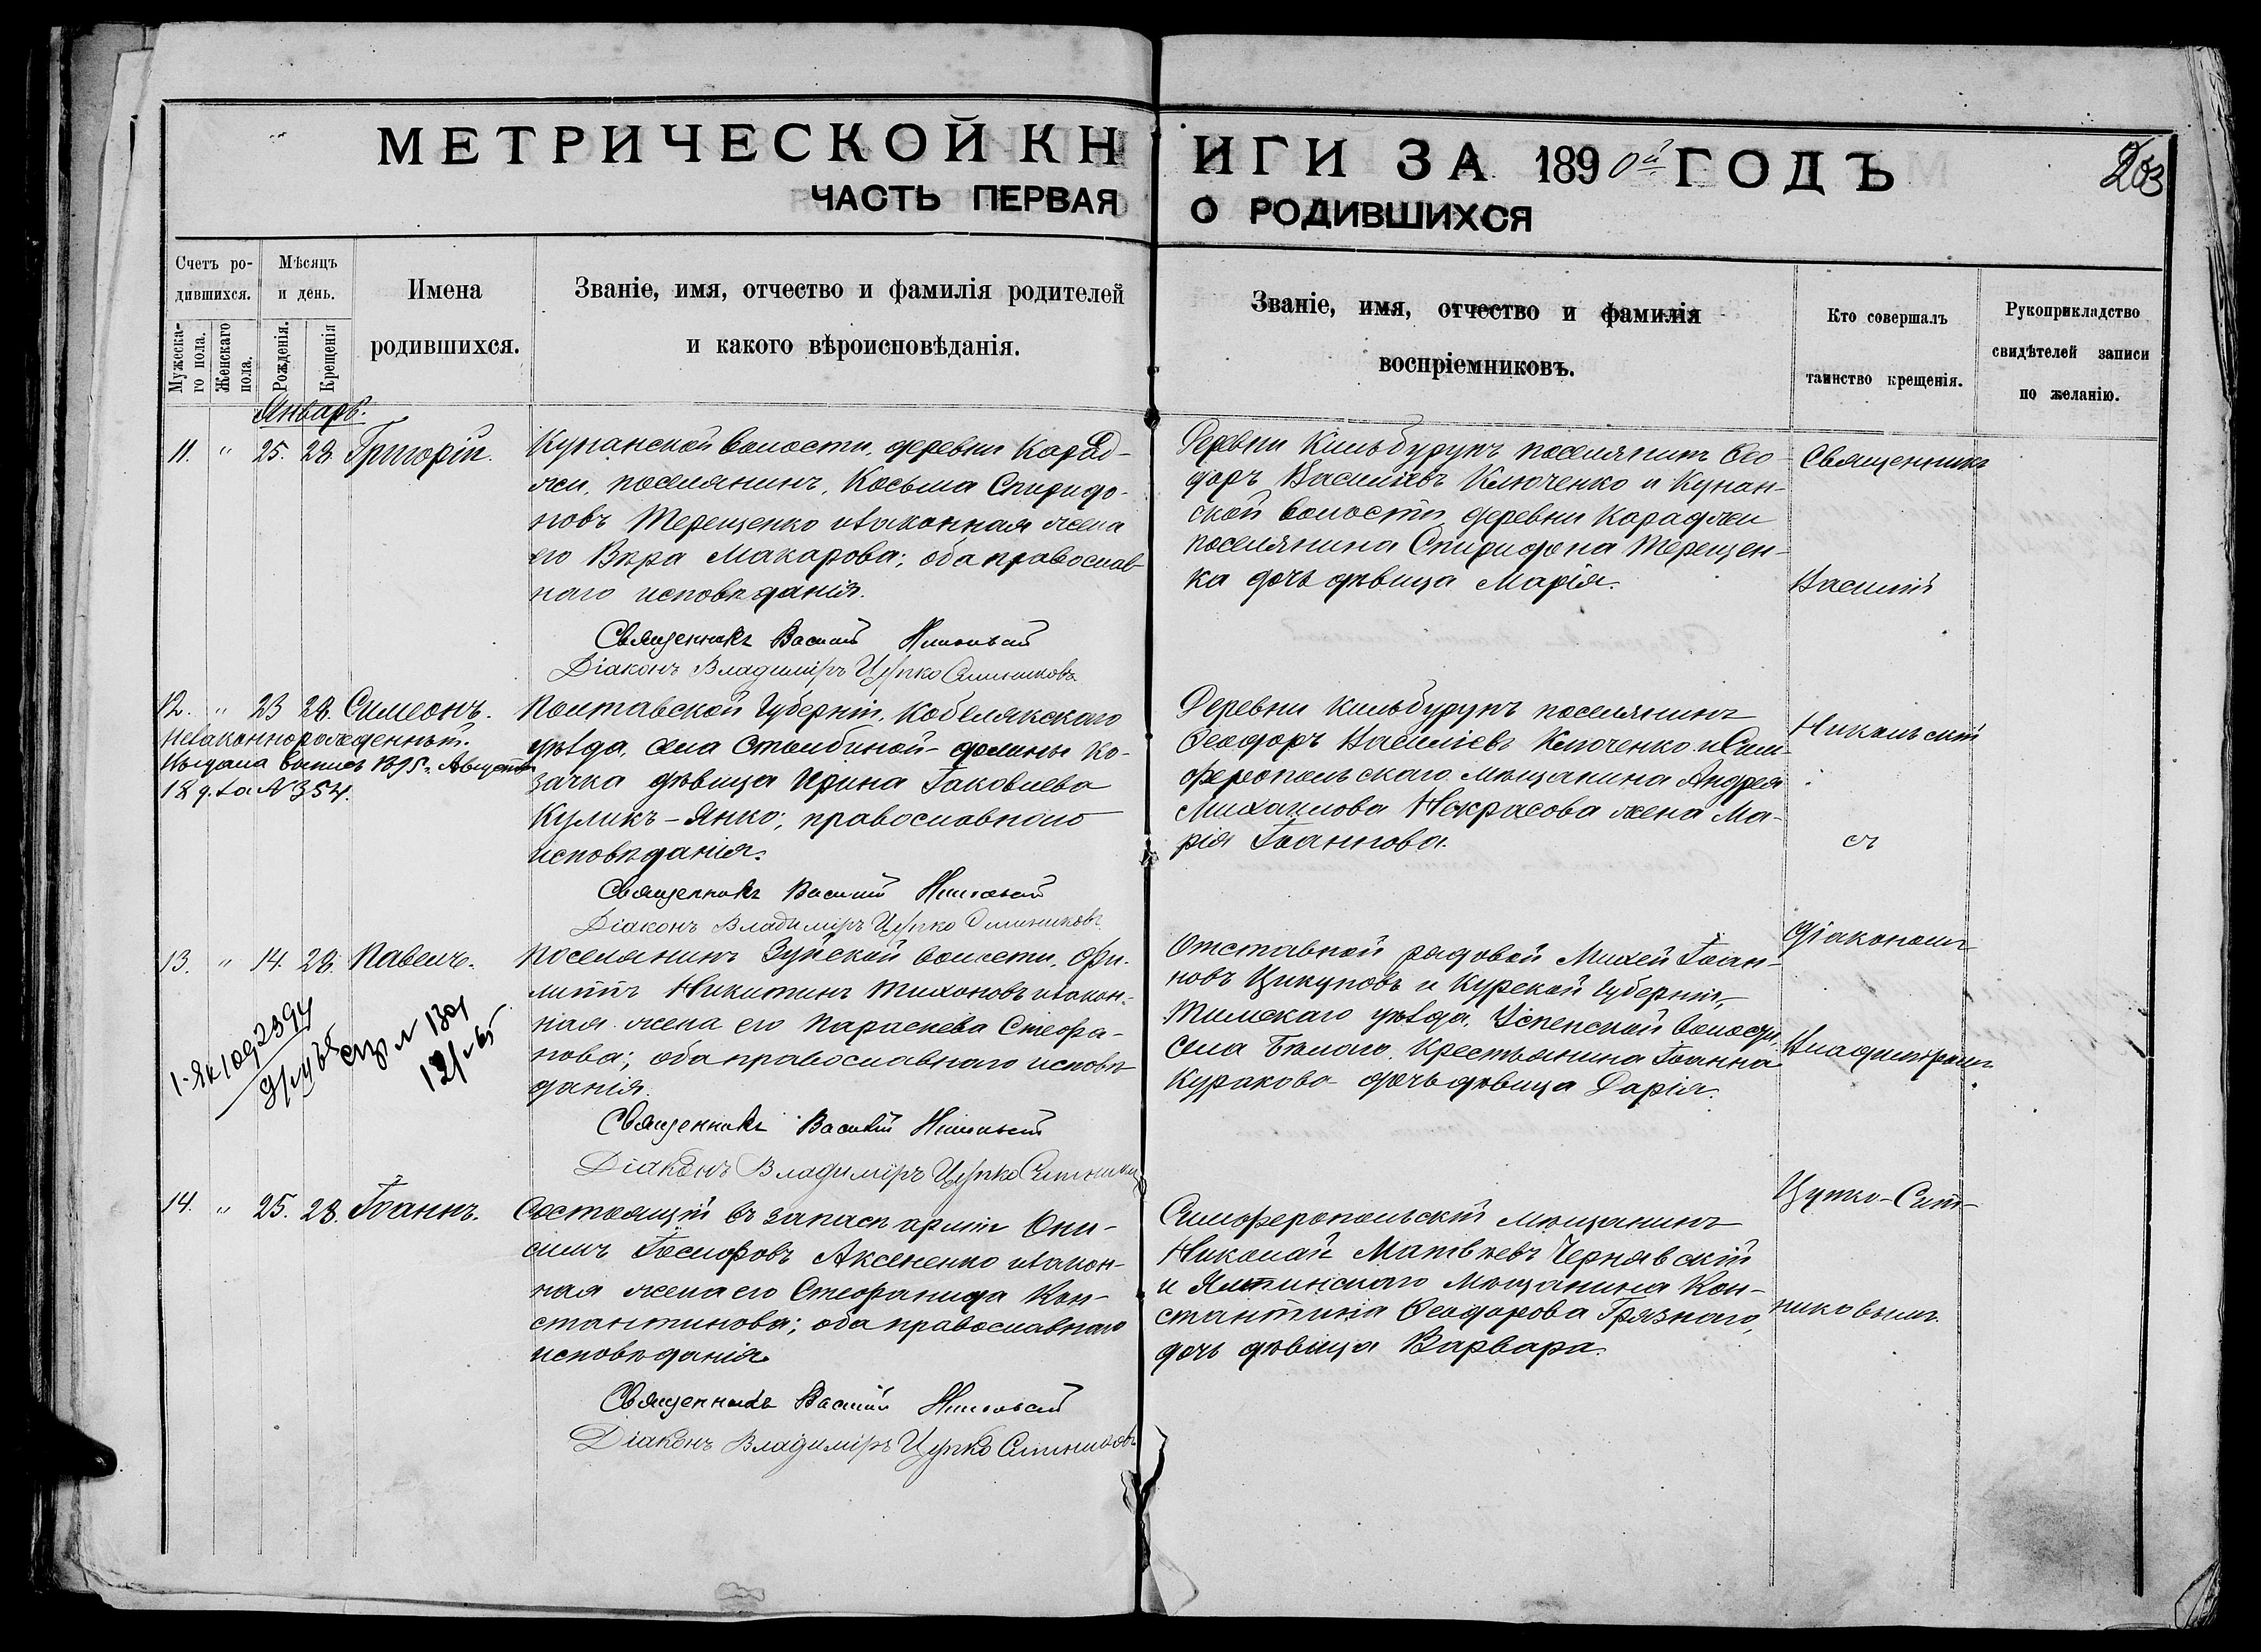 МЕТРИЧЕСКОЙ КНИГИ ЗА 1890й ГОДЪ
203
ЧАСТЬ ПЕРВАЯ О РОДИВШИХСЯ
Счетъ ро-
дившихся.
Мужеска-
го пола.
Женскаго
пола.
Мѣсяцъ
и день.
Рожденія.
Крещенія
Имена
родившихся.
Званіе, имя, отчество и фамилія родителей
и какого вѣроисповѣданія.
Званіе, имя, отчество и фамилія
воспріемниковъ.
Кто совершалъ
таинство крещенія.
Рукоприкладство
свидѣтелей записи
по желанію.
Январь.
11. " 25. 28. Григорій.
Кунанской волости, деревни Карад-
жи, поселянинъ, Косьма Спиридо-
новъ Терещенко и законная жена
его Вѣра Макарова; оба православ-
наго исповѣданія.
Священникъ Василій Никольскій
Діаконъ Владиміръ Цупко Ситниковъ
Деревни Кильбурунъ поселянинъ Ѳео-
доръ Василіевъ Ключенко и Кунан-
ской волости деревни Караджи
поселянина Спиридона Терещен-
ка дочь дѣвица Марія.
12. " 23 28. Симеонъ.
Незаконнорожденный.
Выдана выпись 1895 г. Августа
18 д. за № 354.
Полтавской Губерніи, Кобелякскаго
уѣзда, села Столбиной-долины ко-
зачка дѣвица Ирина Іаковлева
Куликъ-Янко; православного
исповѣданія.
Священникъ Василій Никольскій
Діаконъ Владиміръ Цупко Ситниковъ
Деревни Кильбурунъ поселянинъ
Ѳеодоръ Василіевъ Ключенко и Сим-
феропольскаго мѣщанина Андрея
Михаилова Некрасова жена Ма-
рія Іоаннова.
13. " 14. 28. Павелъ.
Поселянинъ Зуйской волости, Фи-
липпъ Никитинъ Тихоновъ и закон-
ная жена его Параскева Стефа-
нова; оба православнаго исповѣ-
данія.
Священникъ Василій Никольскій
Діаконъ Владиміръ Цупко Ситниковъ
Отставной рядовой Михей Іоан-
новъ Цикуновъ и Курской Губерніи,
Тимскаго уѣзда, Успенской волости,
села Бѣлаго, крестьянина Іоанна
Куракова дочь дѣвица Дарія.
14. " 25. 28. Іоаннъ.
Состоящій въ запасѣ арміи Они-
симъ Іосифовъ Аксененко и закон-
ная жена его Стефанида Кон-
стантинова; оба православнаго
исповѣданія.
Священникъ Василій Никольскій
Діаконъ Владиміръ Цупко Ситниковъ
Симферопольскій мѣщанинъ
Николай Матвѣевъ Чернявскій
и Ялтинскаго мѣщанина Кон-
стантина Ѳеодорова Грязнаго,
дочь дѣвица Варвара.
Священникъ
Василій
Никольскій
съ
діакономъ
Владиміромъ
Цупко-Сит-
никовымъ.